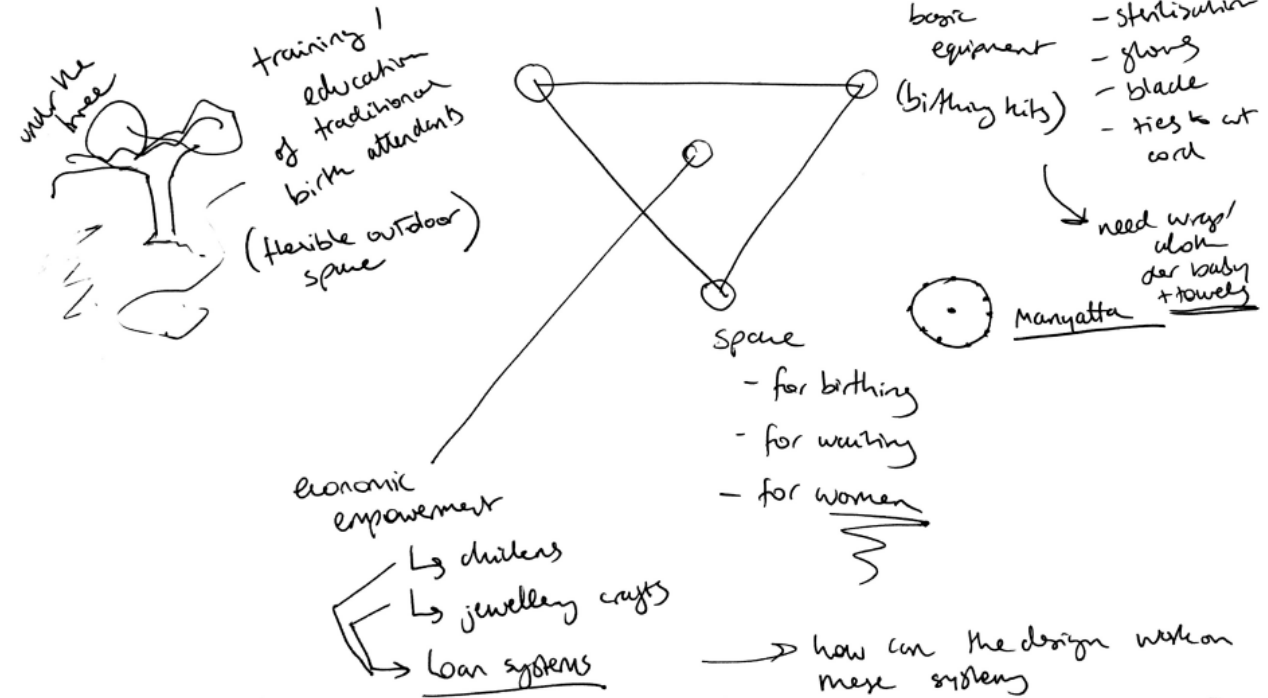 under the
tree
training /
education
of traditional
birth attendants
(flexible outdoor)
space
basic
equipment
(birthing kits)
- sterilisation
- gloves
- blade
- ties to cut
cord
need wrap/
cloth
for baby
+ towels
Manyatta
space
- for birthing
- for waiting
- for women
economic
empowerment
↳ chickens
↳ jewellery crafts
loan systems
how can the design work on
these systems